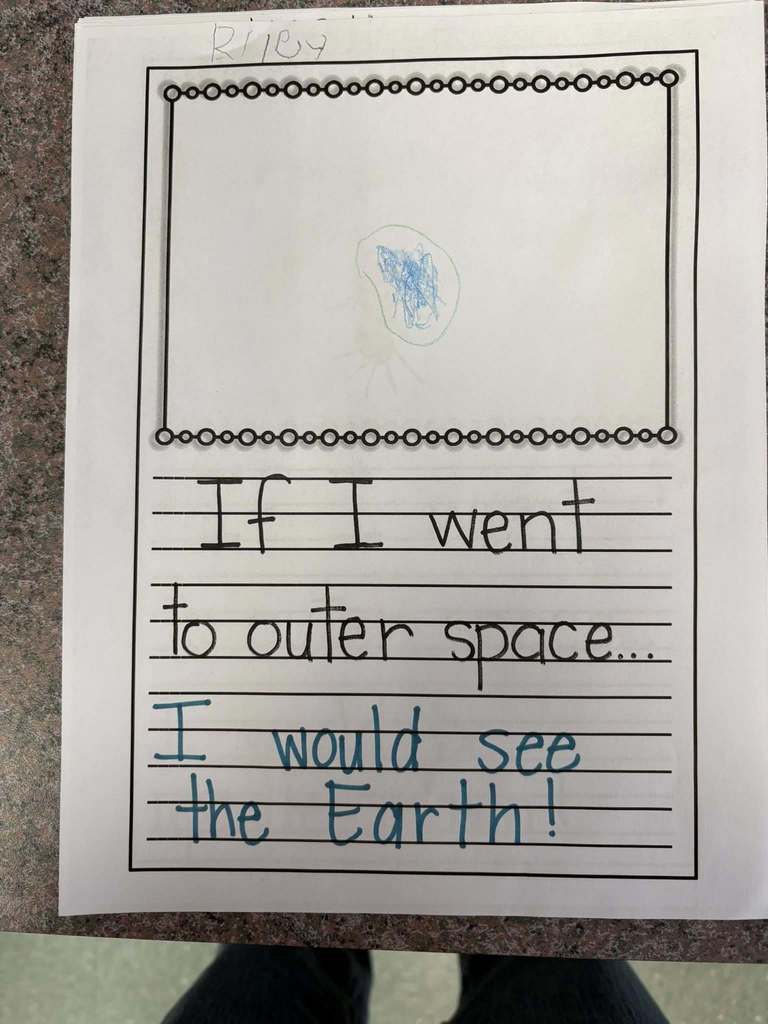 Riley
If I went
to outer space...
I would see
the Earth!